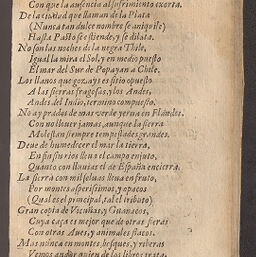 Con que la ausencia al sofrimiento exorta.
De la ciudad que llaman de la Plata
(Nunca tan dulce nombre se antipile)
Hasta Pasto se estiende, y se dilata.
No son las noches de la negra Thile,
Igual la mira el Sol, y en medio puesto
El mar del Sur de Popayan a Chile.
Los llanos que gozays es sitio opuesto
A las sierras fragosas, y los Andes,
Andes del Indio, termino compuesto.
No ay prados de mar verde yerua en Flandes.
Con no llouer jamas, aunque la sierra
Molestan siempre tempestades grandes.
Deue de humedecer el mar la tierra,
En fin sin rios lleuò el campo enjuto,
Quanto con lluuias el de España encierra.
La sierra con mil seluas lleua en fruto,
Por montes asperissimos, y opacos
(Qual es el principal, tal el tributo)
Gran copia de Vicuñas, y Guanacos,
Cuya caça es mejor que de otras fieras
Con otras Aues, y animales flacos.
Mas nunca en montes, bosques, y riberas
Vemos andar quien de los libros trata